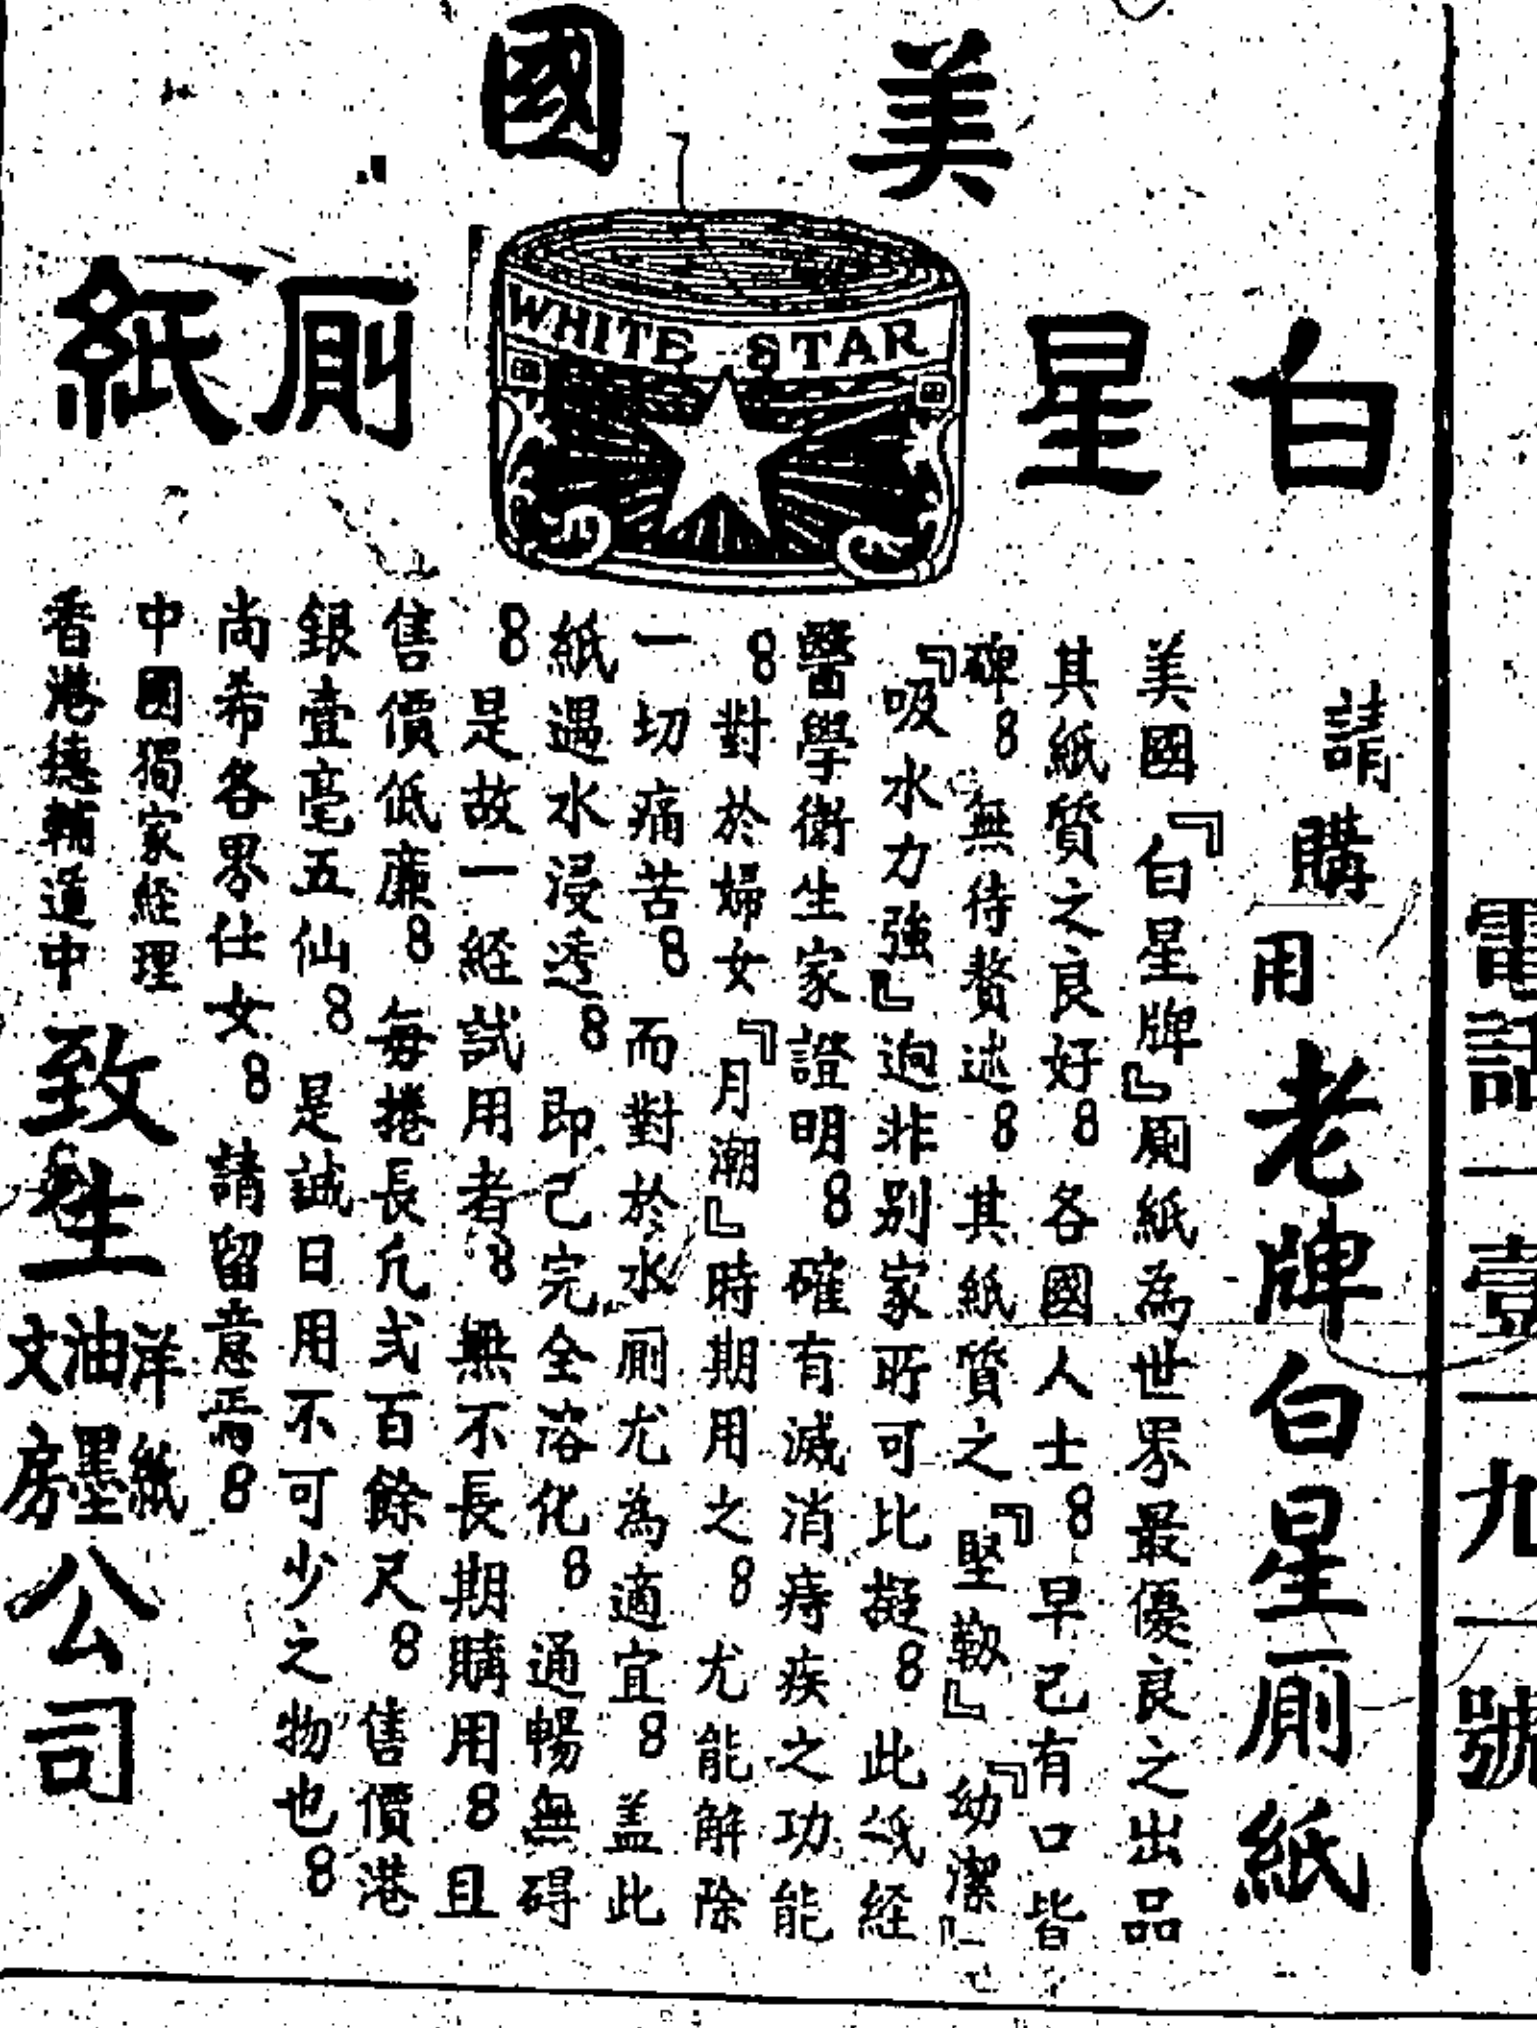 美國
白星廁紙
WHITE STAR
請購用老牌白星廁紙
美國『白星牌』厠紙為世界最優良之出品
其紙質之良好8各國人士8早已有口皆
碑8無待贅述8其紙質之『堅靱』『幼潔』
『吸水力強』逈非别家所可比擬8此紙経
醫學衛生家證明8確有滅消痔疾之功能
8對於婦女『月潮』時期用之8尤能解除
一切痛苦8而對於水厠尤為適宜8盖此
紙遇水浸透8即已完全溶化8通暢無碍
8是故一経試用者8無不長期購用8且
售價低廉8每捲長凢弍百餘尺8售價港
銀壹毫五仙8是誠日用不可少之物也8
尚希各界仕女8請留意焉8
中國獨家経理
香港德輔道中
致生洋紙油墨文房公司
電話一壹一九一號